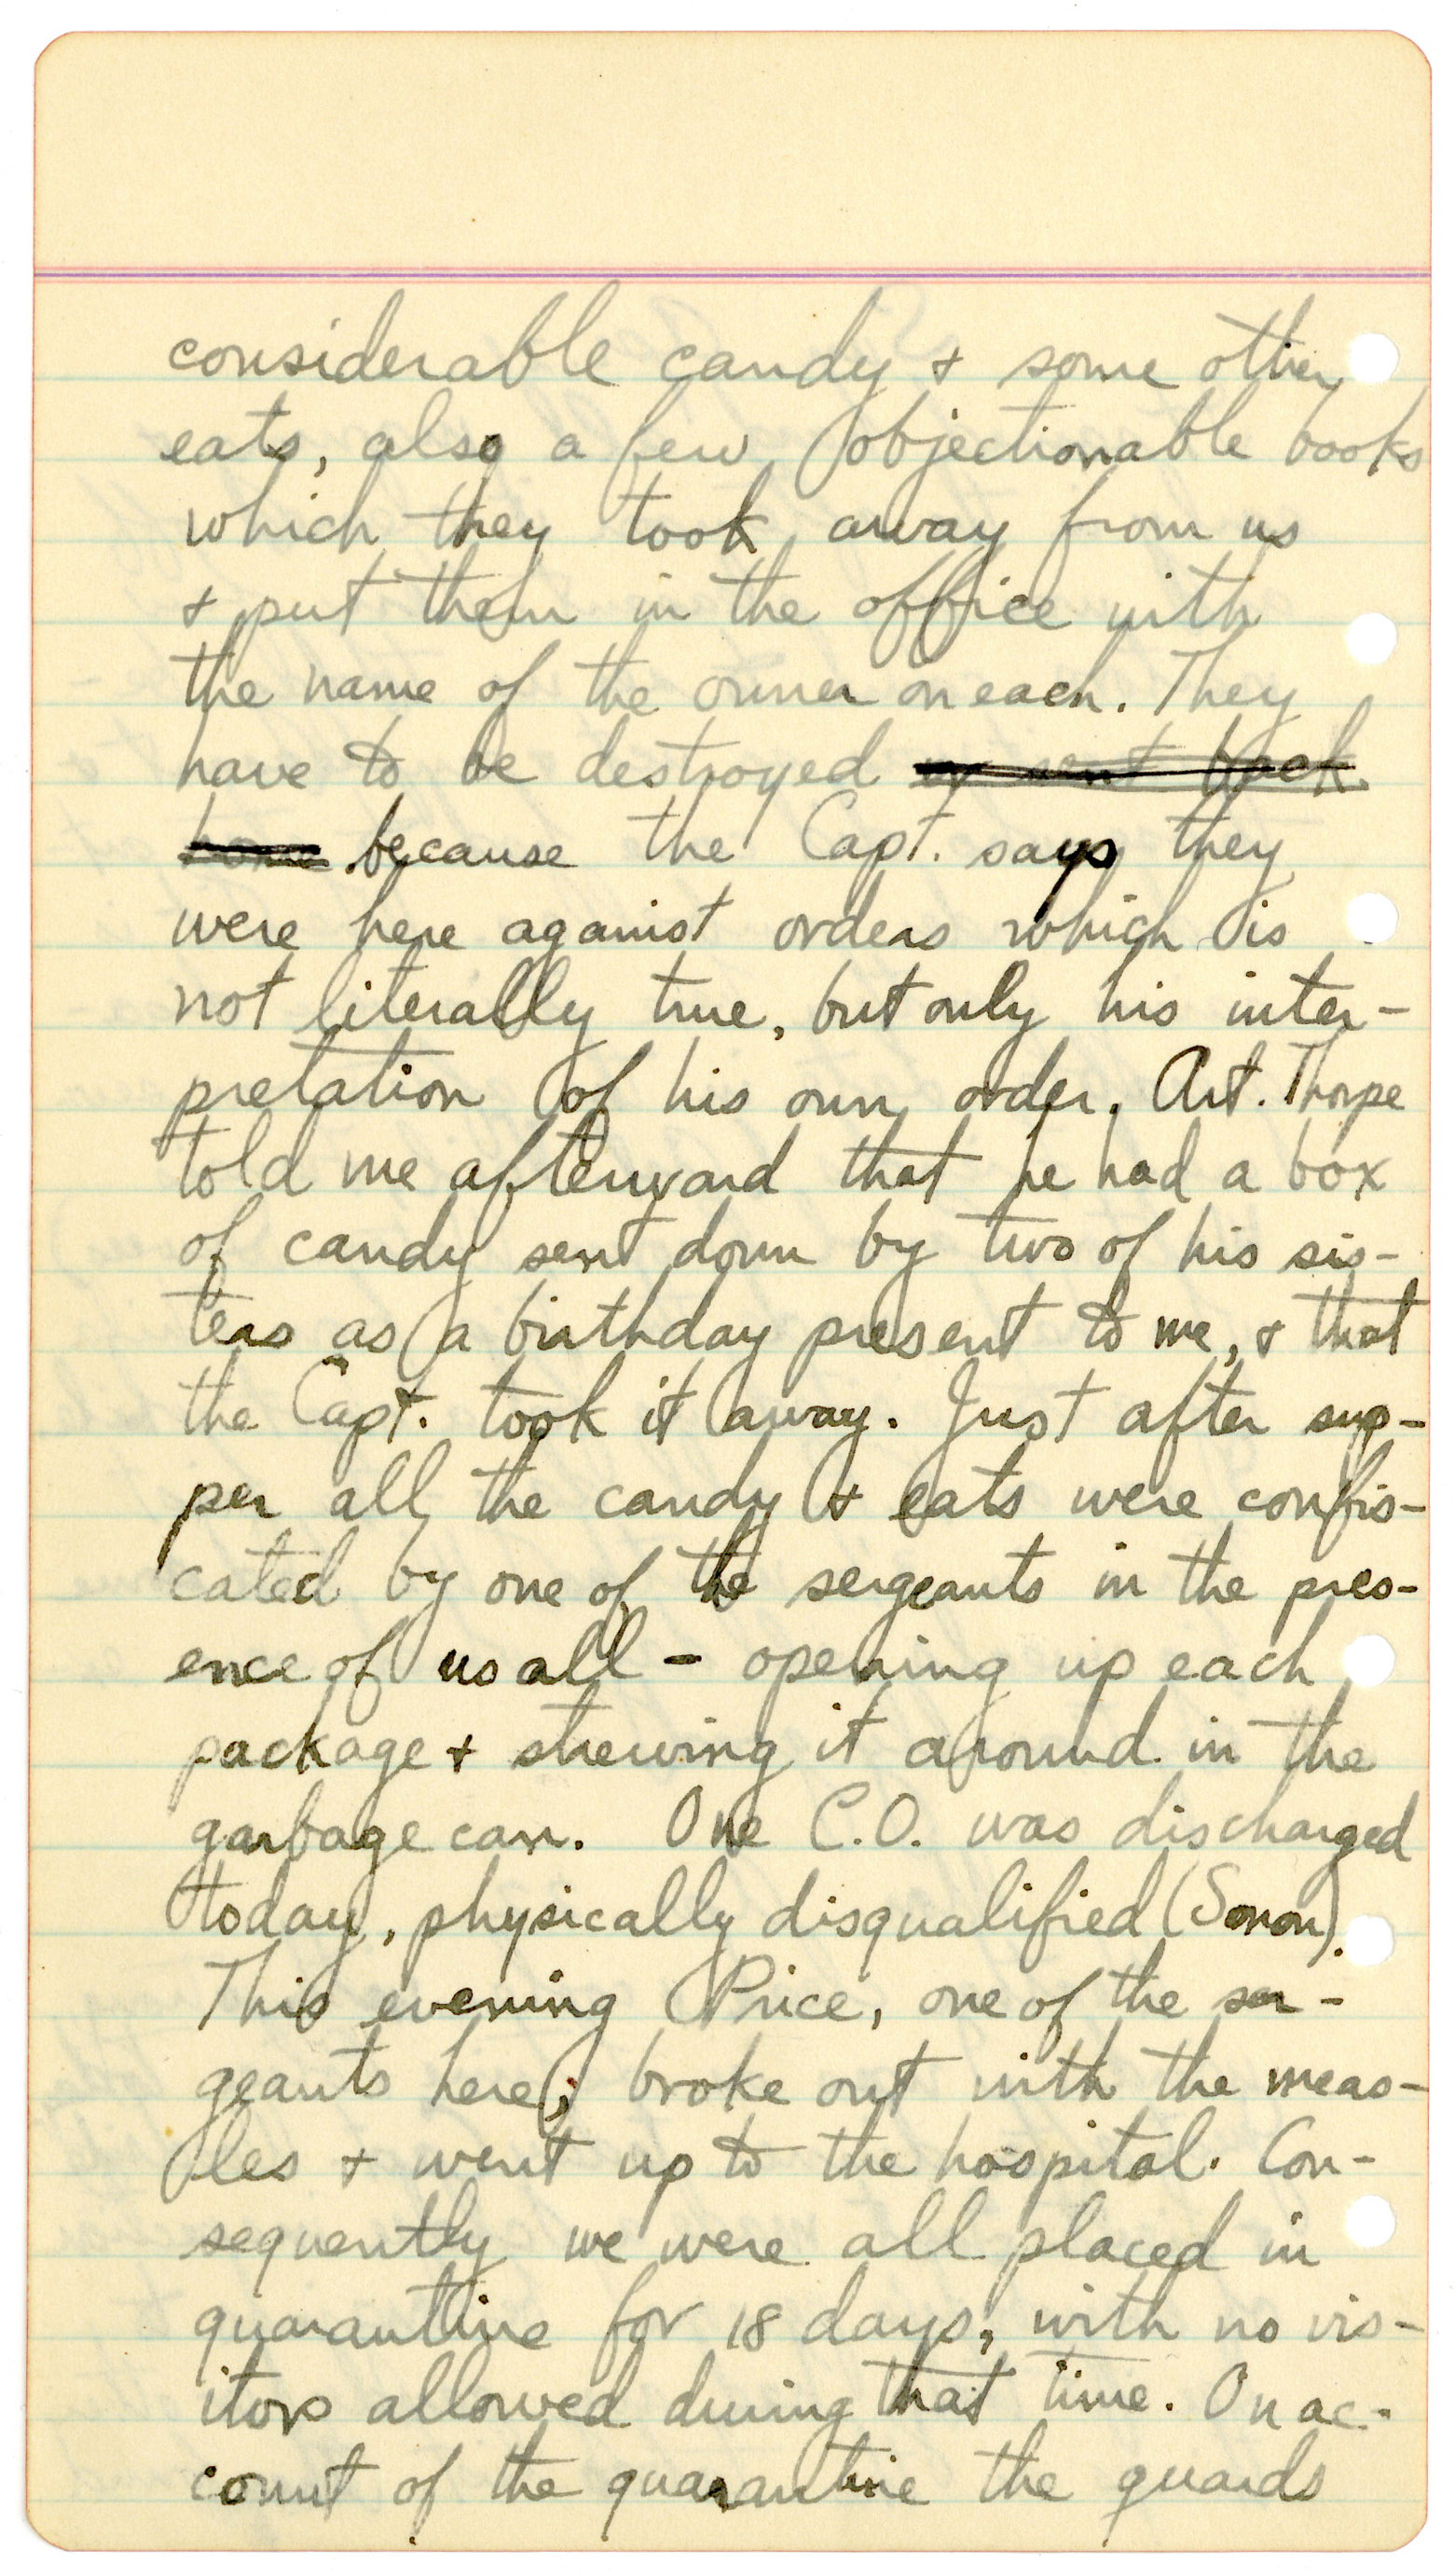 considerable candy + some other
eats, also a few objectionable books
which they took away from us
+ put them in the office with
the name of the owner on each. They
have to be destroyed or sent back
home because the Capt. says they
were here against orders which is
not literally true, but only his inter-
pretation of his own order. Art. Thorpe
told me afterward that he had a box
of candy sent down by two of his sis-
ters as a birthday present to me, + that
the Capt. took it away. Just after sup-
per all the candy + eats were confis-
cated by one of the sergeants in the pres-
ence of us all - opening up each
package + strewing it around in the
garbage can. One C.O. was discharged
today, physically disqualified (Sonon).
This evening Price, one of the ser-
geants here, broke out with the meas-
les + went up to the hospital. Con-
sequently we were all placed in
quarantine for 18 days, with no vis-
itors allowed during that time. On ac-
count of the quarantine the guards